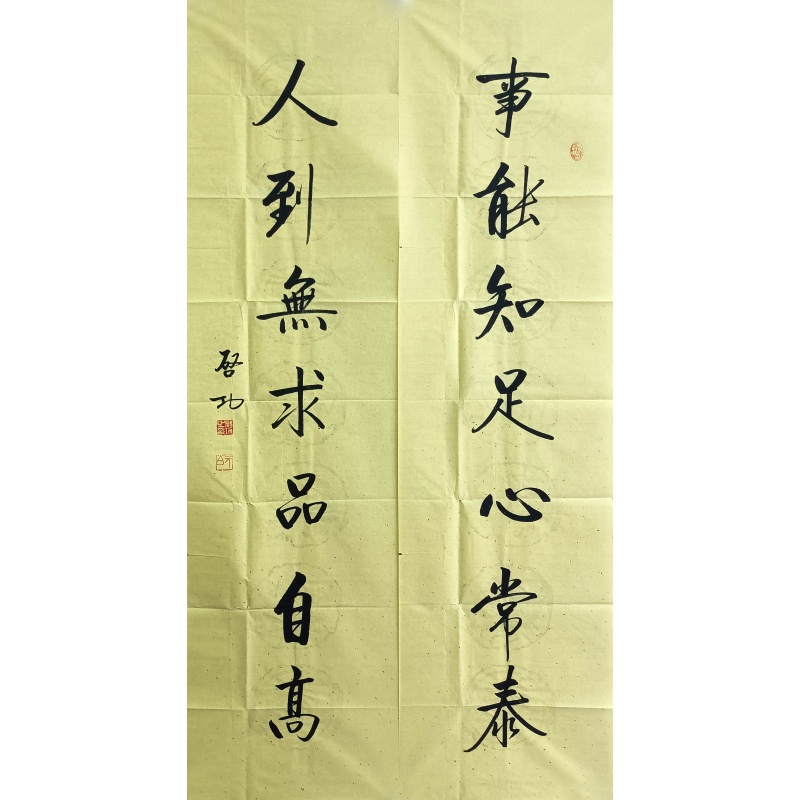 事能知足心常泰
人到無求品自高
启功